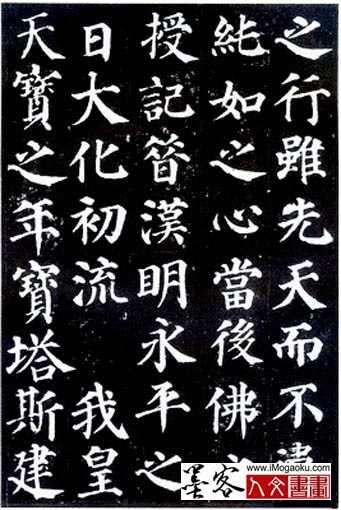 之行雖先天而不違
純如之心當後佛
授記昔漢明永平之
日大化初流 我皇
天寶之年寶塔斯建
www.iMogaoku.com
墨客 人文書畫